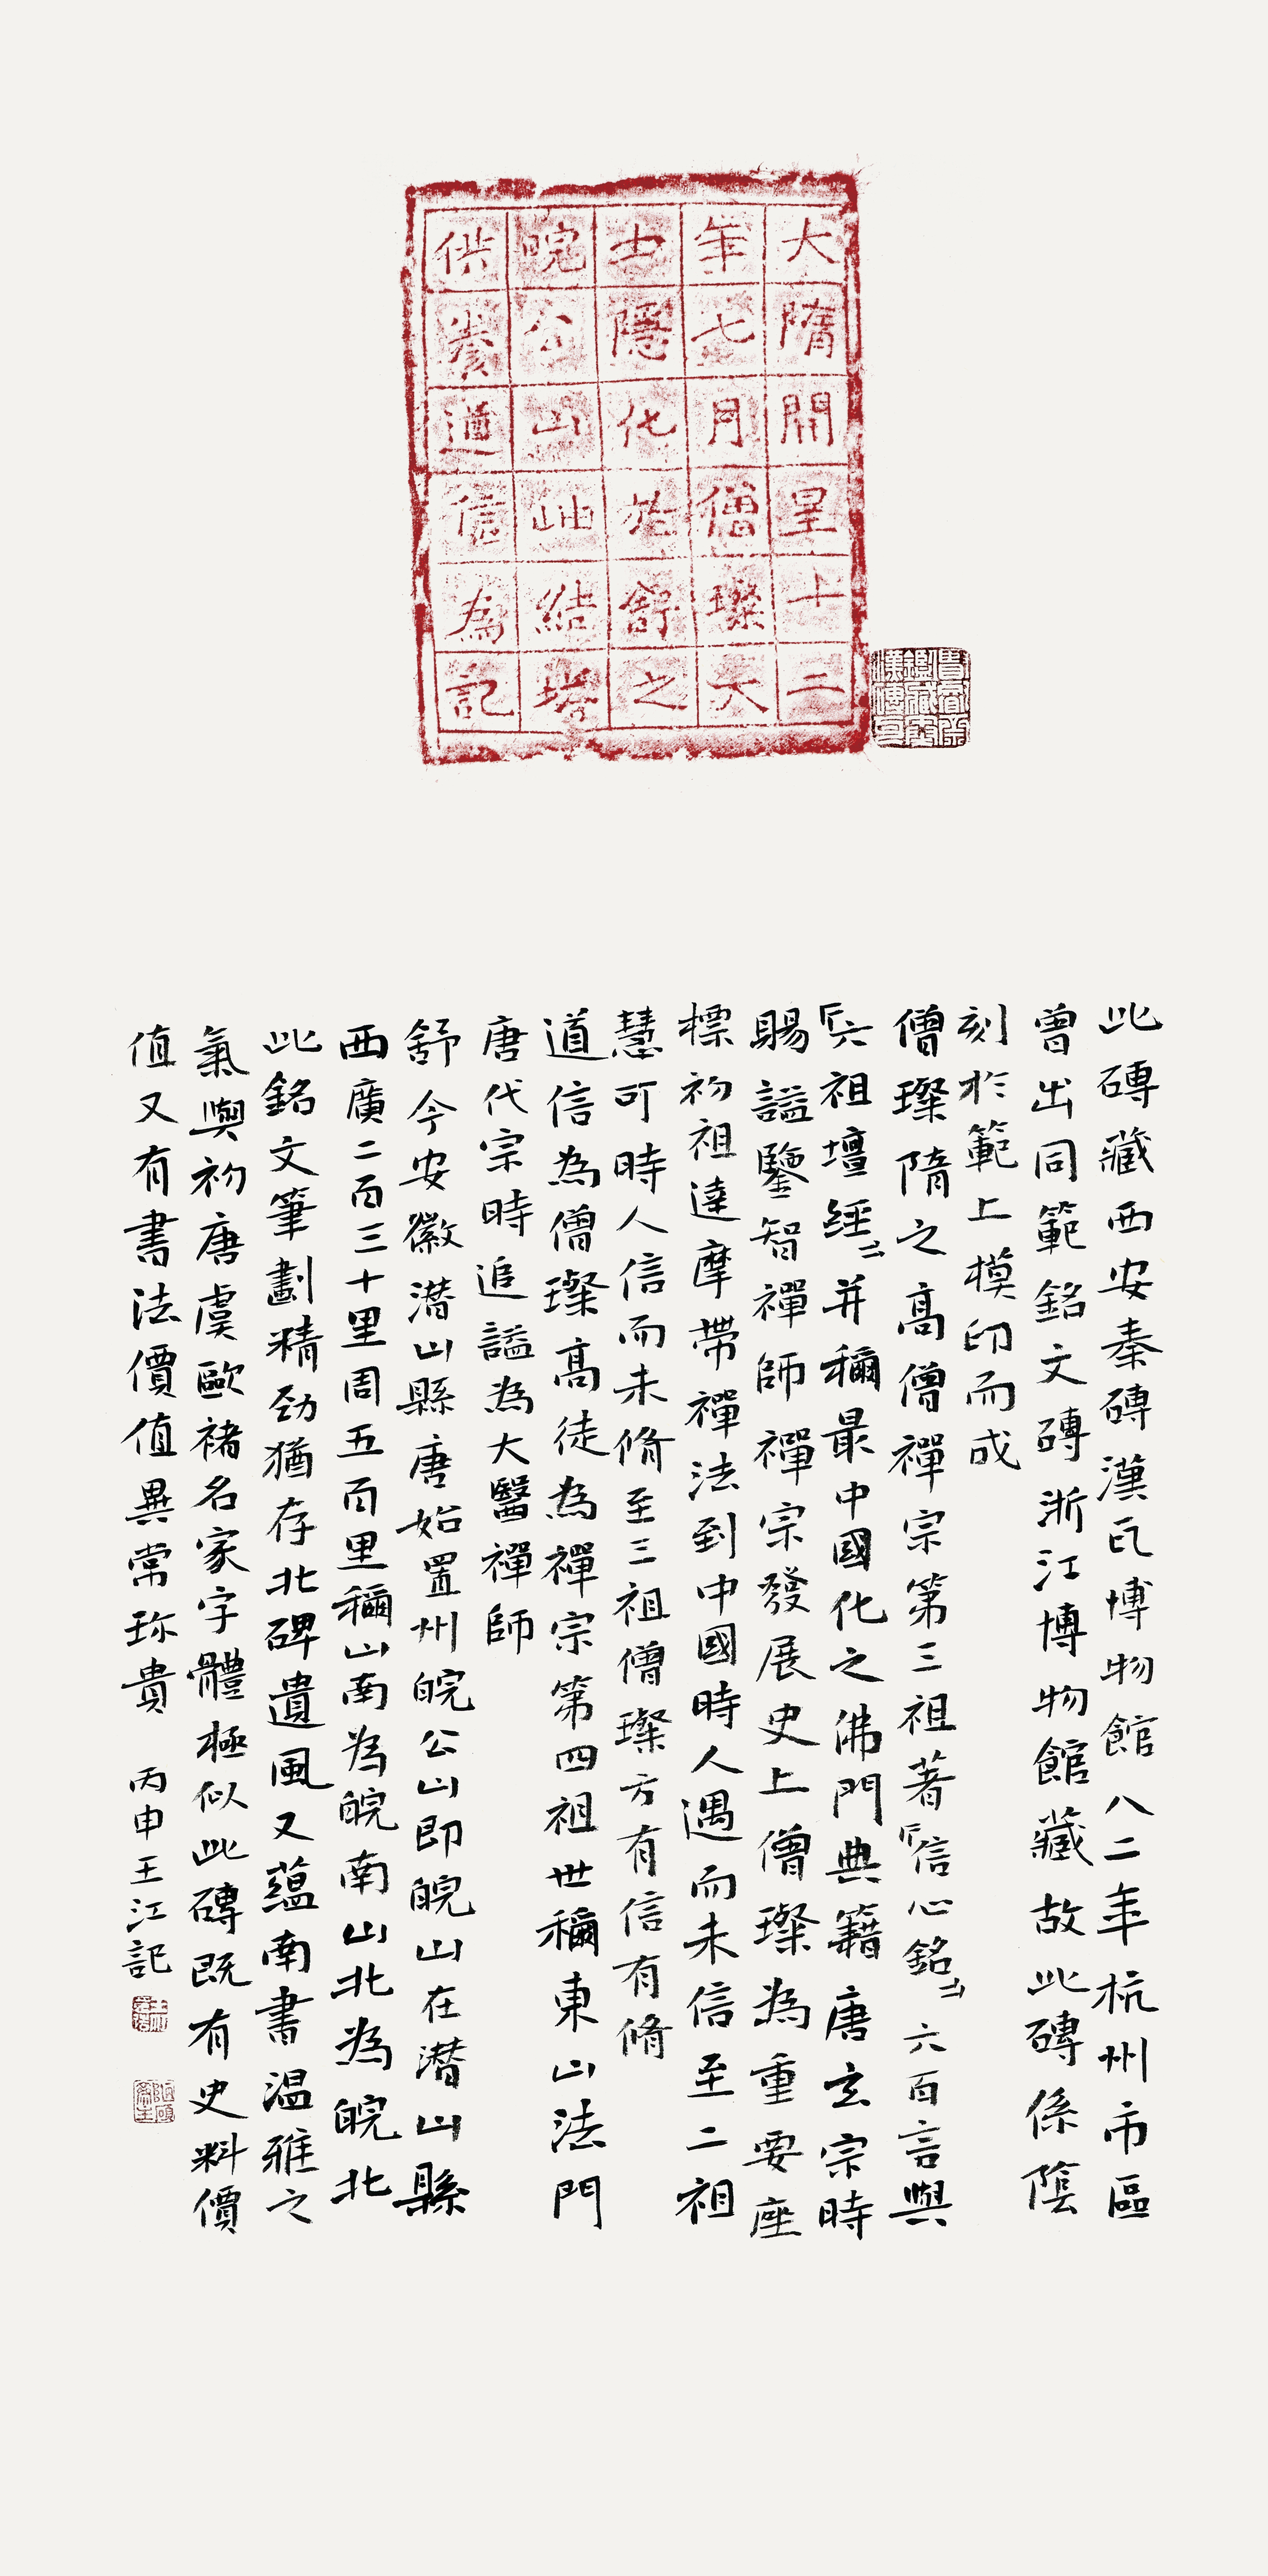 大隋開皇十二
年七月僧璨大
士隱化於舒之
皖公山岫結塔
供養道信為記
此磚藏西安秦磚漢瓦博物館八二年杭州市區
曾出同範銘文磚浙江博物館藏故此磚係陰
刻於範上模印而成
僧璨隋之高僧禪宗第三祖著『信心銘』六百言與
『六祖壇經』并稱最中國化之佛門典籍唐玄宗時
賜謚鑒智禪師禪宗發展史上僧璨為重要座
標初祖達摩帶禪法到中國時人遇而未信至二祖
慧可時人信而未脩至三祖僧璨方有信有脩
道信為僧璨高徒為禪宗第四祖世稱東山法門
唐代宗時追謚為大醫禪師
舒今安徽潛山縣唐始置州皖公山即皖山在潛山縣
西廣二百三十里周五百里稱山南為皖南山北為皖北
此銘文筆劃精勁猶存北碑遺風又蘊南書温雅之
氣與初唐虞歐褚名家字體極似此磚既有史料價
值又有書法價值異常珎貴 丙申王江記